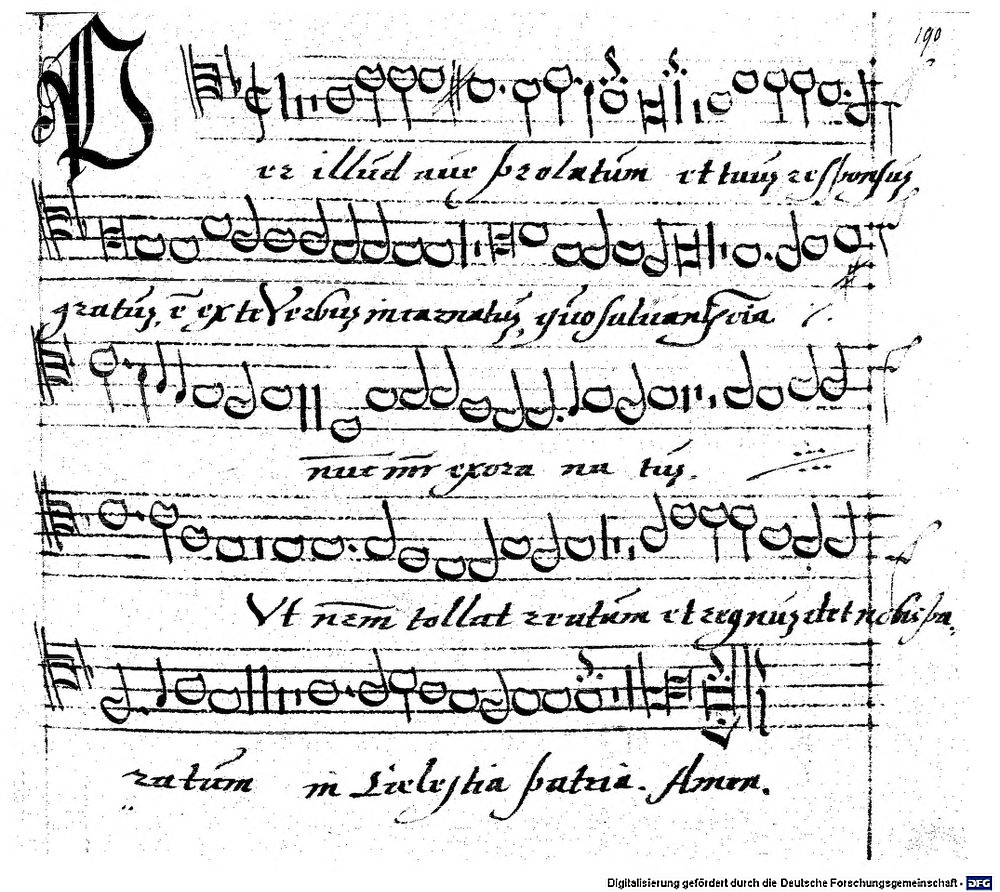 190
Per illud aue prolatum et tuus responsus
gratus, ē ex te Verbus incarnatus, quo saluantʳ oīa
nunc mr exora natus.
Ut nrm tollat reatum et regnus det nobis pa,
ratum in Cielestia patria. Amen.
Digitalisierung gefördert durch die Deutsche Forschungsgemeinschaft - DFG